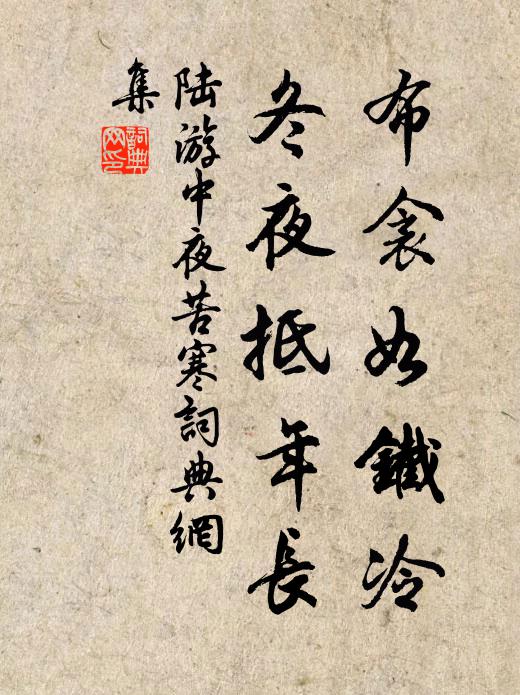 布衾如鐵冷
冬夜抵年長
陸游中夜苦寒詞典網
集
詞典
网印